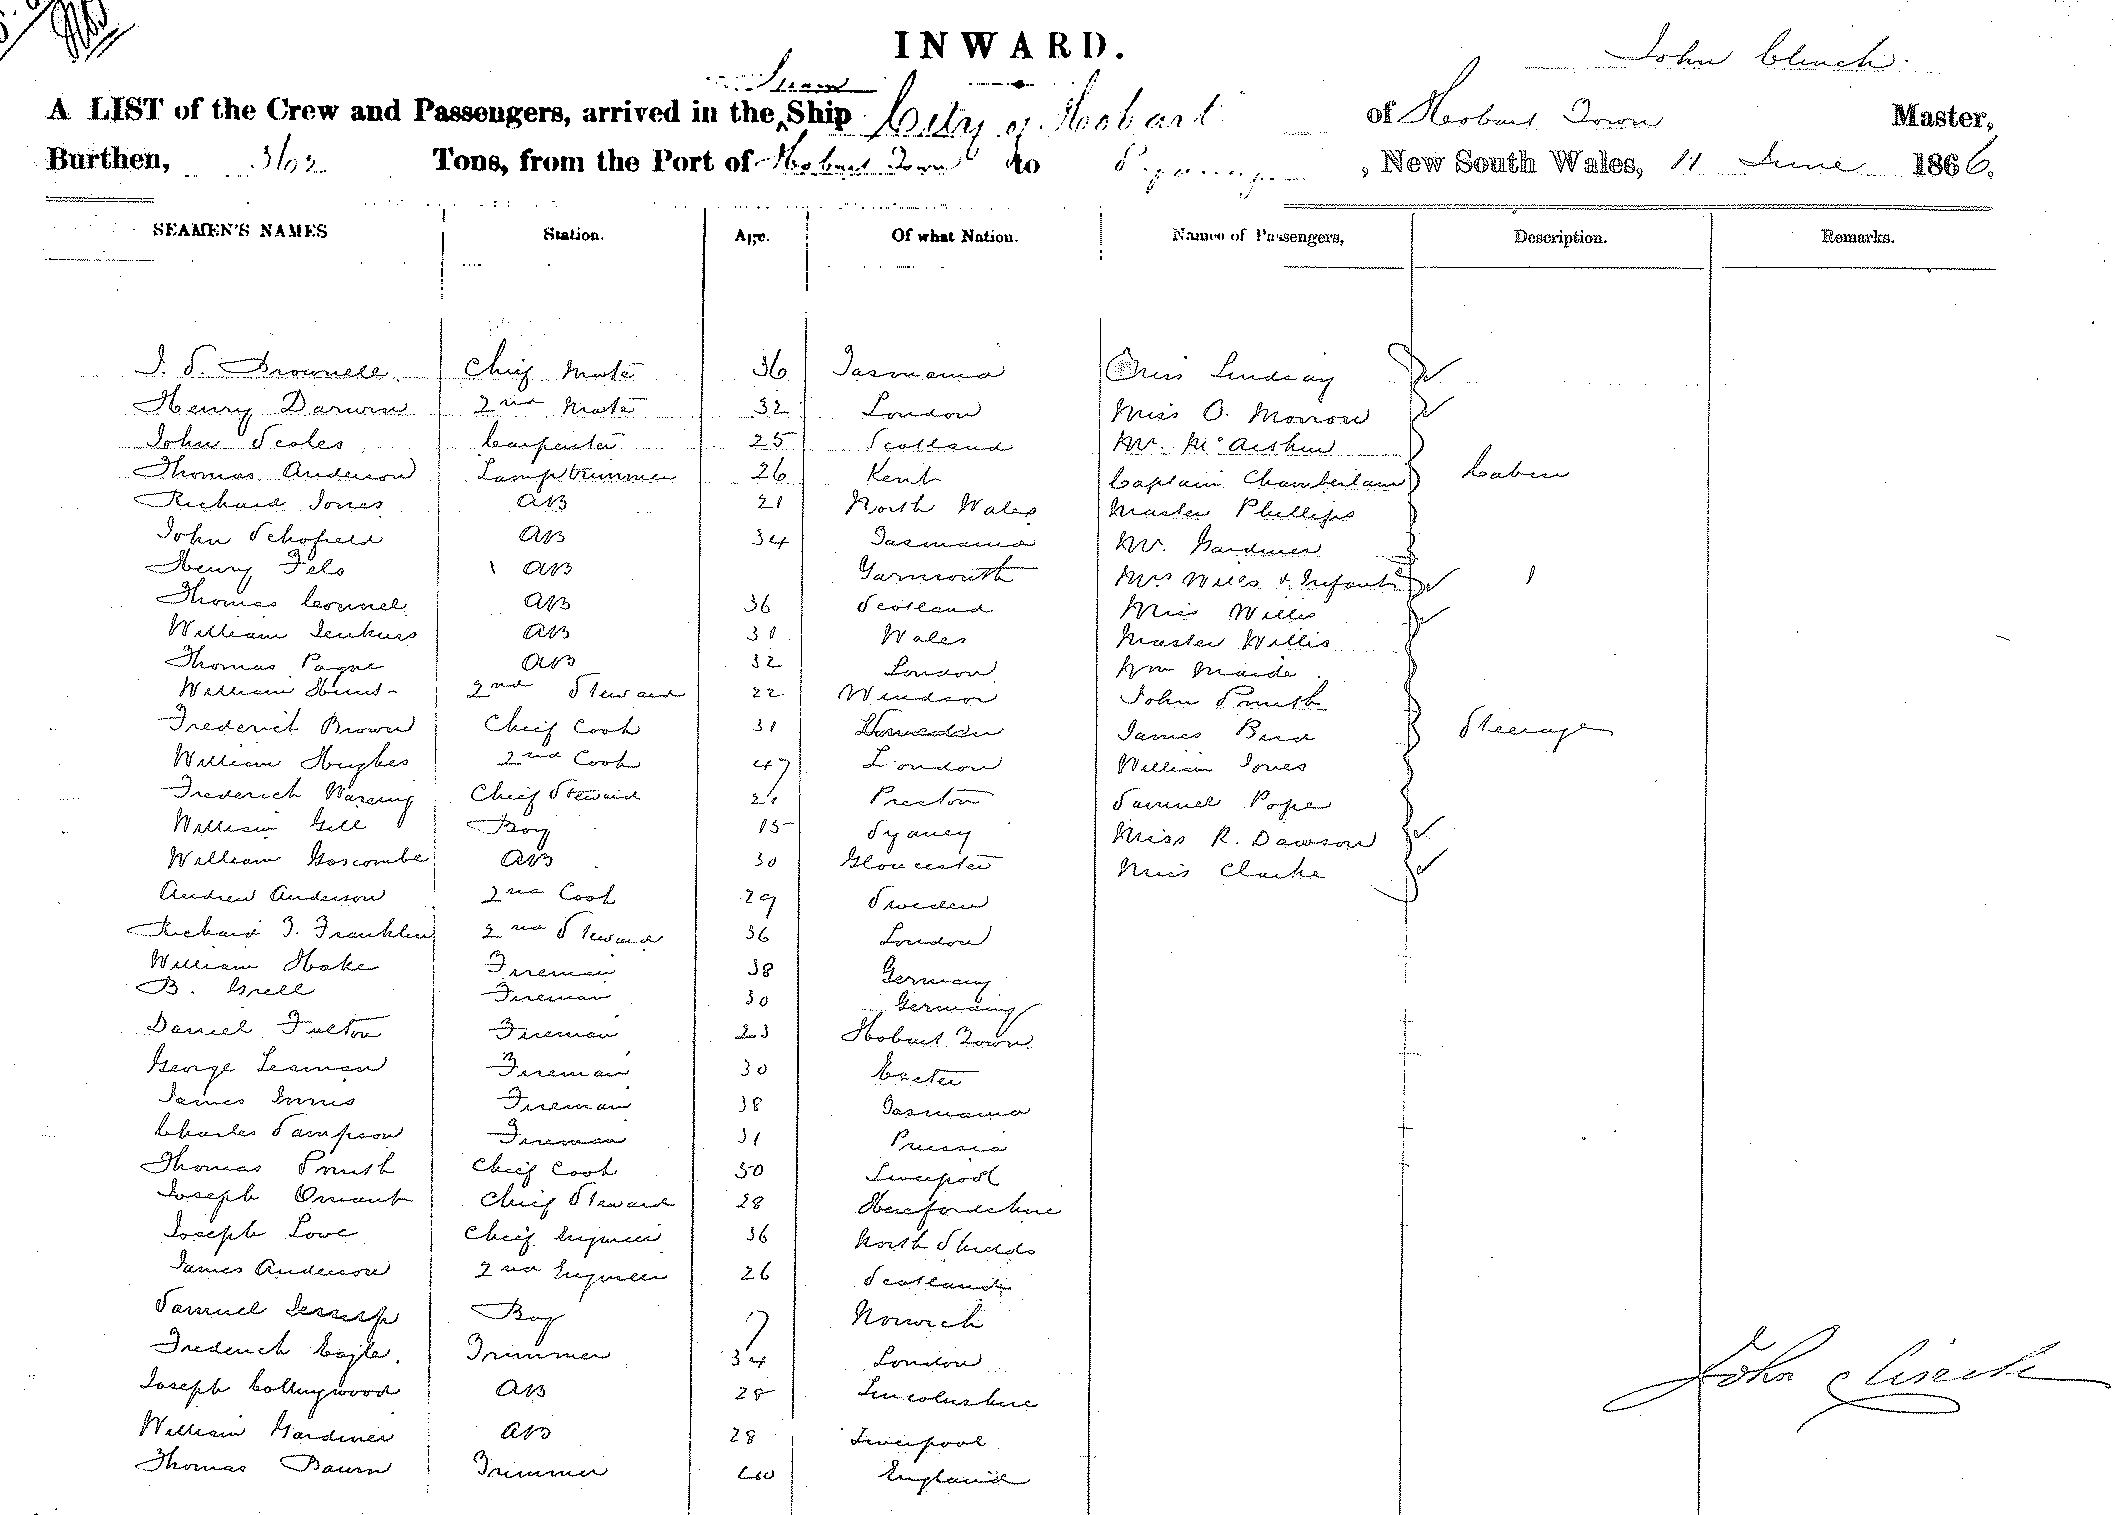 INWARD.
John Clinch.
Steam
A LIST of the Crew and Passengers, arrived in the Ship City of Hobart of Hobart Town Master,
Burthen, Tons, from the Port of Hobart Town to Sydney, New South Wales, 11 June 1866.
SEAMEN'S NAMES Station. Age. Of what Nation. Names of Passengers, Description. Remarks.
J. S. Brownell Chief Mate 36 Tasmania Miss Lindsay
Henry Darwin 2nd Mate 32 London Miss O. Morrow
John Scoles Carpenter 25 Scotland Mr. McArthur
Thomas Anderson Lamptrimmer 26 Kent Captain Chamberlain Cabin
Richard Jones AB 21 North Wales Master Phillips
John Schofield AB 34 Tasmania Mr. Gardiner
Henry Fels AB Yarmouth Mrs Willis & Infant 1
Thomas Connel AB 36 Scotland Miss Willis
William Jenkins AB 31 Wales Master Willis
Thomas Payne AB 32 London Wm Maide
William Hunt 2nd Steward 22 Windsor John Smith
Frederick Brown Chief Cook 31 Sweden James Bird Steerage
William Hughes 2nd Cook 47 London William Jones
Frederick Wareing Chief Steward 21 Preston Samuel Pope
William Gill Boy 15 Sydney Miss R. Dawson
William Goscombe AB 30 Gloucester Miss Clarke
Andrew Anderson 2nd Cook 29 Sweden
Richard T. Franklin 2nd Steward 36 London
William Hake Fireman 38 Germany
B. Grell Fireman 30 Germany
Daniel Fulton Fireman 23 Hobart Town
George Leaman Fireman 30 Exeter
James Innis Fireman 38 Tasmania
Charles Sampson Fireman 31 Prussia
Thomas Smith Chief Cook 50 Liverpool
Joseph Omant Chief Steward 28 Herefordshire
Joseph Lowe Chief Engineer 36 North Shields
James Anderson 2nd Engineer 26 Scotland
Samuel Jessup Boy 17 Norwich
Frederick Cogle. Trimmer 34 London
Joseph Collingwood AB 28 Lincolnshire
William Gardiner AB 28 Liverpool
Thomas Trimmer 40 England
John Clinch